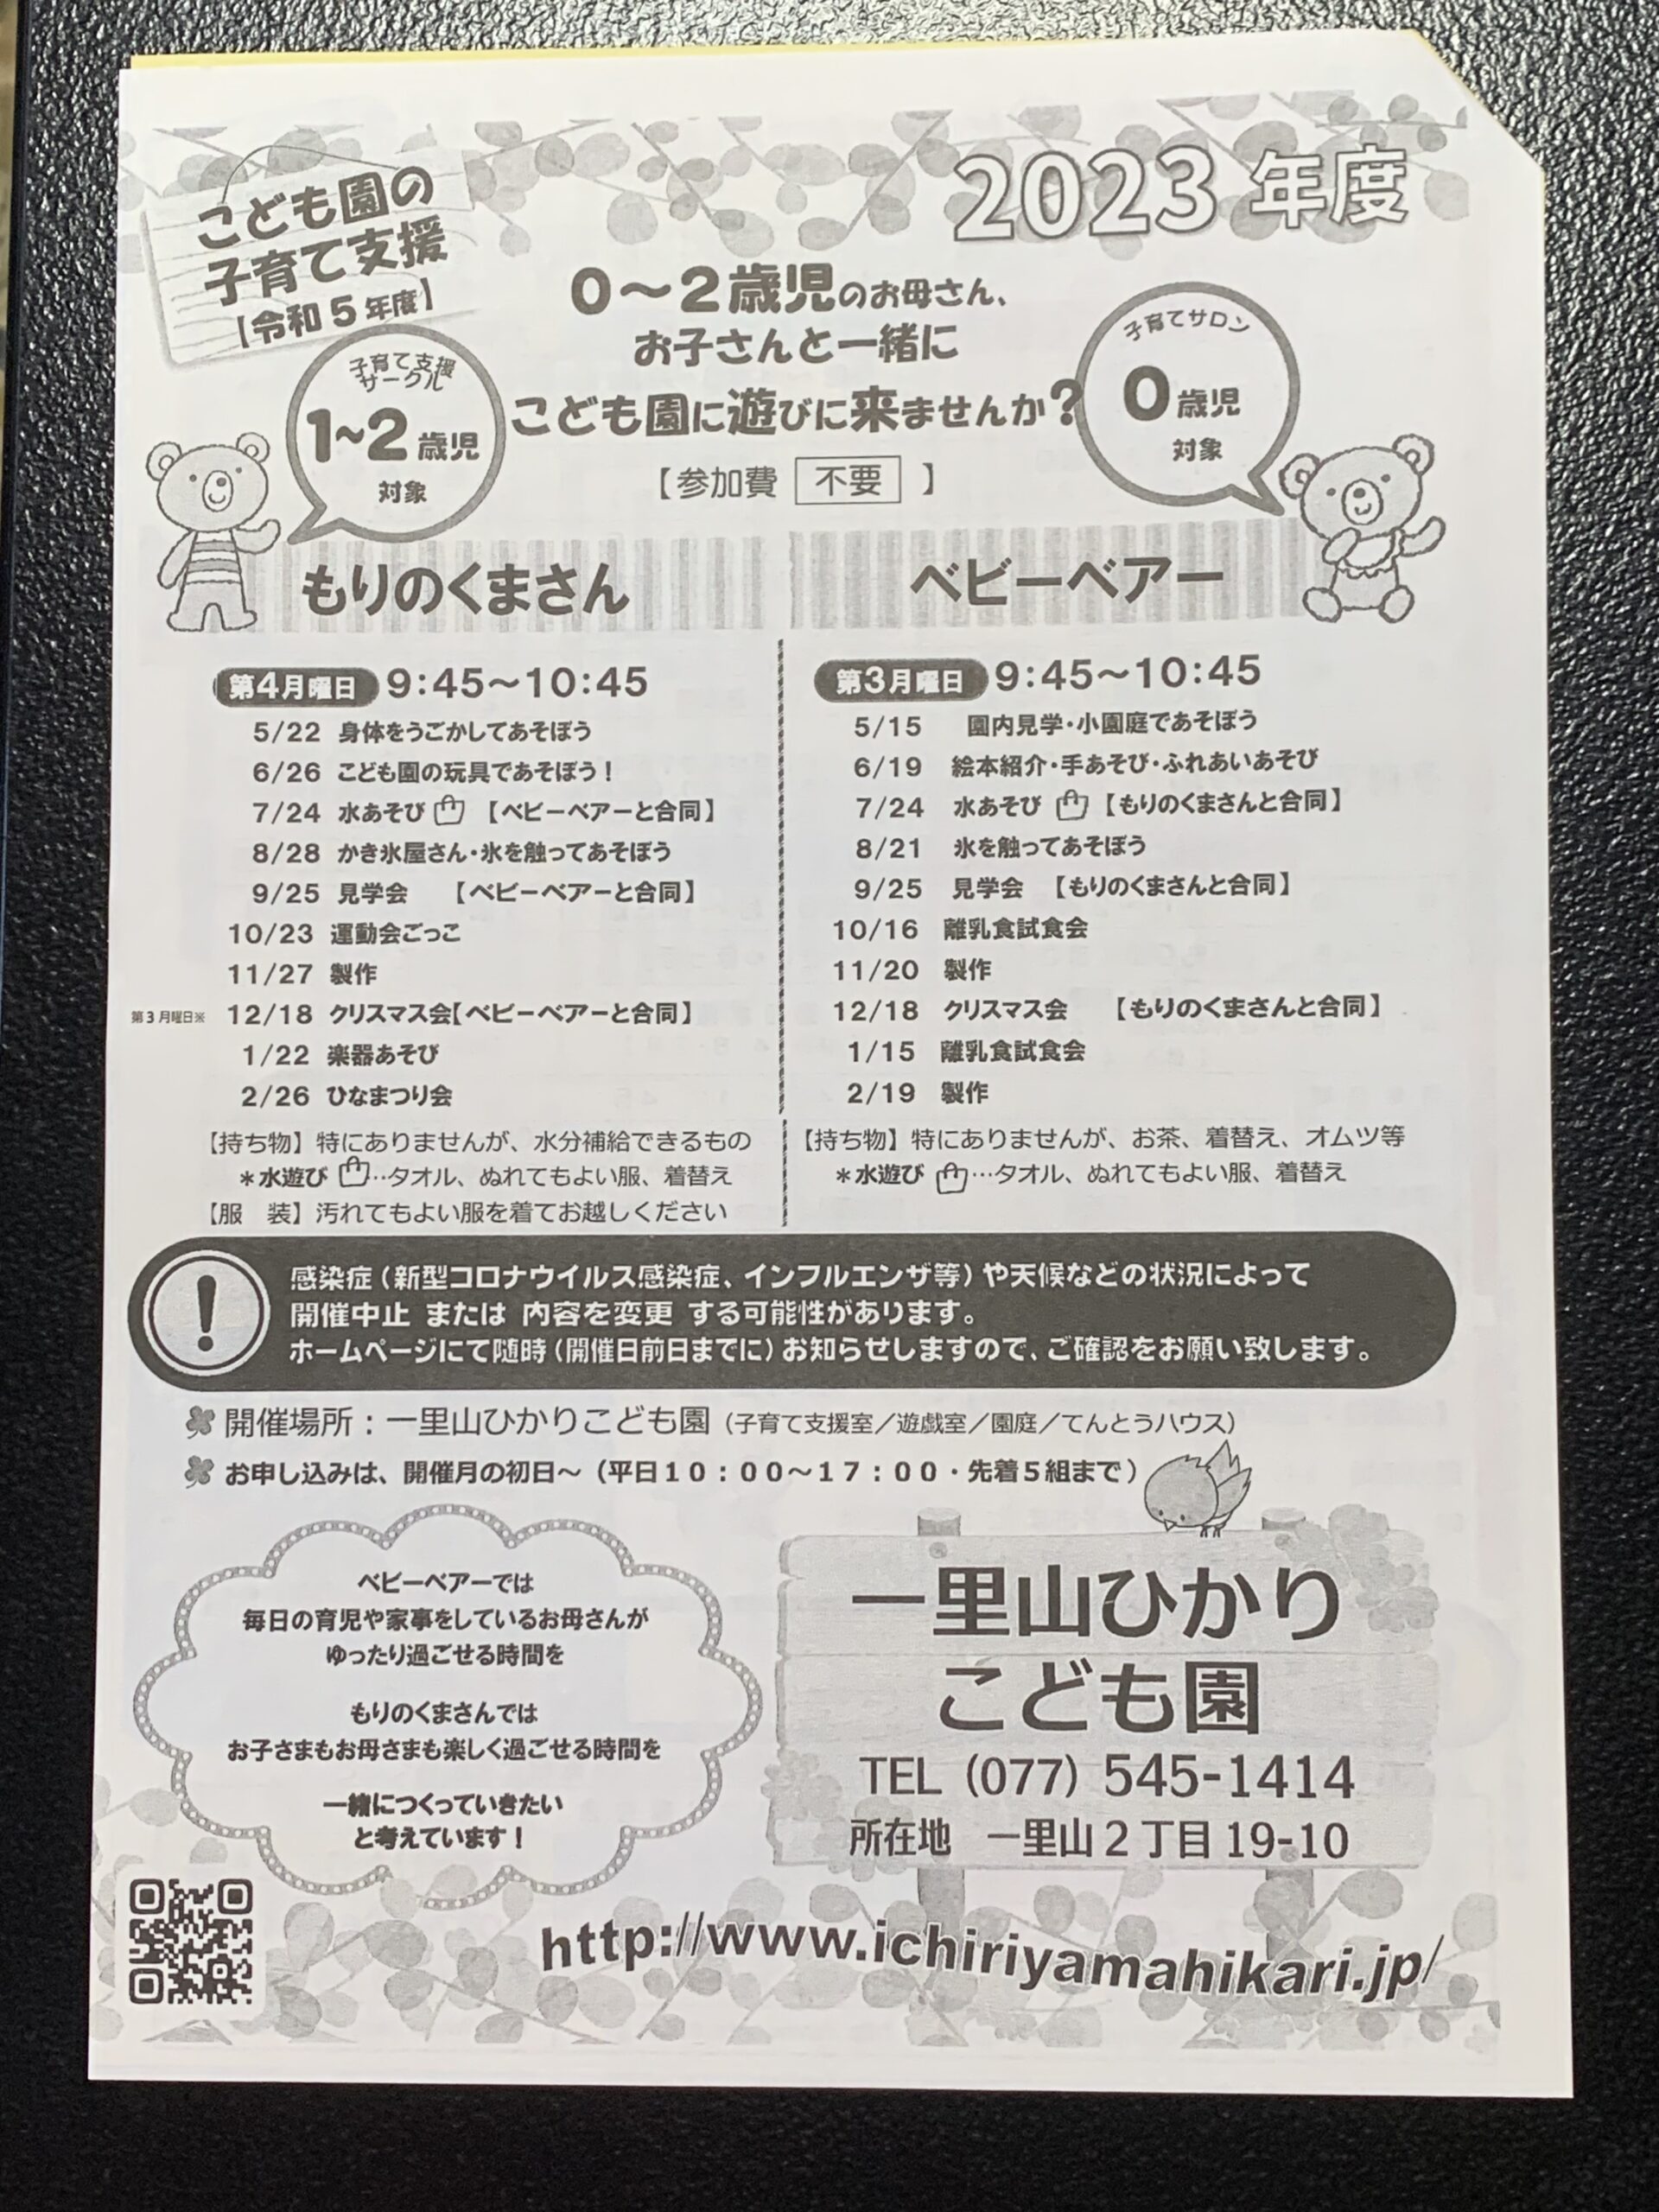 2023 年度
こども園の
子育て支援
【令和5年度】
0～2歳児のお母さん、
お子さんと一緒に
こども園に遊びに来ませんか？
【参加費 不要 】
子育て支援
サークル
1~2 歳児
対象
子育てサロン
0 歳児
対象
もりのくまさん
第4月曜日 9:45～10:45
5/22 身体をうごかしてあそぼう
6/26 こども園の玩具であそぼう！
7/24 水あそび 【ベビーベアーと合同】
8/28 かき氷屋さん・氷を触ってあそぼう
9/25 見学会 【ベビーベアーと合同】
10/23 運動会ごっこ
11/27 製作
第3月曜日※ 12/18 クリスマス会【ベビーベアーと合同】
1/22 楽器あそび
2/26 ひなまつり会
【持ち物】特にありませんが、水分補給できるもの
＊水遊び …タオル、ぬれてもよい服、着替え
【服 装】汚れてもよい服を着てお越しください
ベビーベアー
第3月曜日 9:45～10:45
5/15 園内見学・小園庭であそぼう
6/19 絵本紹介・手あそび・ふれあいあそび
7/24 水あそび 【もりのくまさんと合同】
8/21 氷を触ってあそぼう
9/25 見学会 【もりのくまさんと合同】
10/16 離乳食試食会
11/20 製作
12/18 クリスマス会 【もりのくまさんと合同】
1/15 離乳食試食会
2/19 製作
【持ち物】特にありませんが、お茶、着替え、オムツ等
＊水遊び …タオル、ぬれてもよい服、着替え
感染症（新型コロナウイルス感染症、インフルエンザ等）や天候などの状況によって
開催中止 または 内容を変更 する可能性があります。
ホームページにて随時（開催日前日までに）お知らせしますので、ご確認をお願い致します。
開催場所：一里山ひかりこども園（子育て支援室／遊戯室／園庭／てんとうハウス）
お申し込みは、開催月の初日～（平日１０：００～１７：００・先着５組まで）
ベビーベアーでは
毎日の育児や家事をしているお母さんが
ゆったり過ごせる時間を
もりのくまさんでは
お子さまもお母さまも楽しく過ごせる時間を
一緒につくっていきたい
と考えています！
一里山ひかり
こども園
TEL（077）545-1414
所在地 一里山２丁目19-10
http://www.ichiriyamahikari.jp/